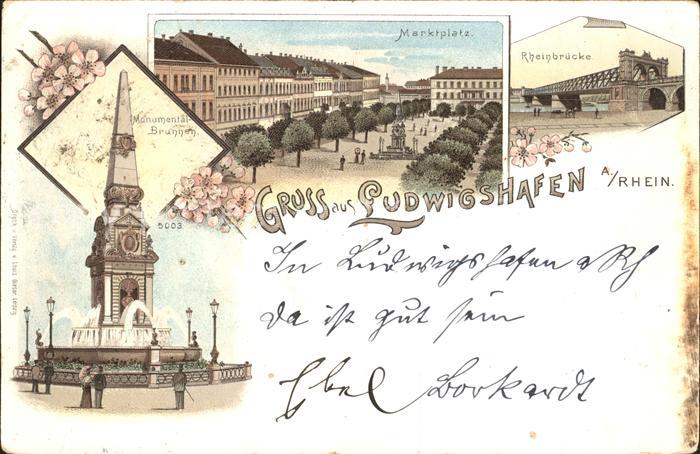 Marktplatz.
Rheinbrücke
Monumental-
Brunnen.
5003
GRUSS aus LUDWIGSHAFEN A./RHEIN.
In Ludwigshafen a Rh
da ist gut sein
Borkardt